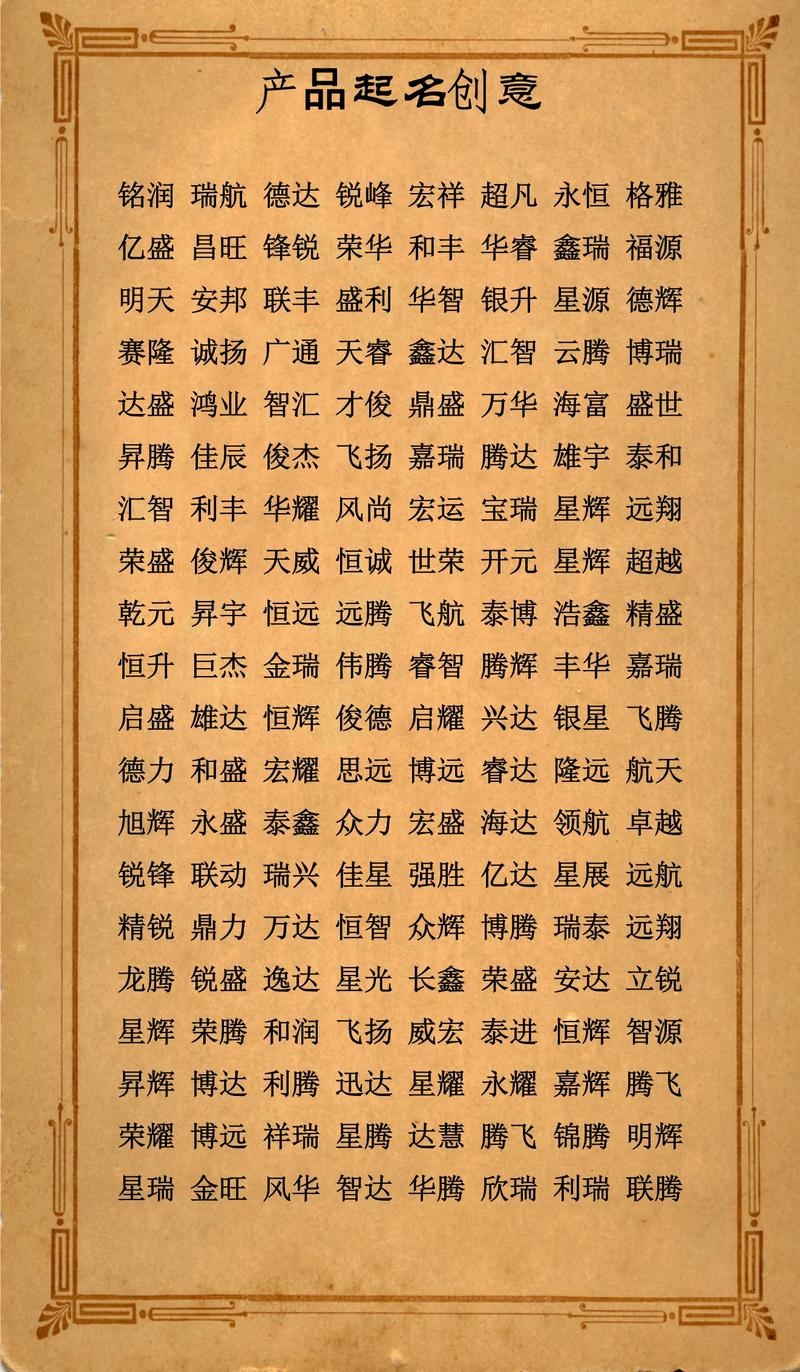 产品起名创意
铭润 瑞航 德达 锐峰 宏祥 超凡 永恒 格雅
亿盛 昌旺 锋锐 荣华 和丰 华睿 鑫瑞 福源
明天 安邦 联丰 盛利 华智 银升 星源 德辉
赛隆 诚扬 广通 天睿 鑫达 汇智 云腾 博瑞
达盛 鸿业 智汇 才俊 鼎盛 万华 海富 盛世
昇腾 佳辰 俊杰 飞扬 嘉瑞 腾达 雄宇 泰和
汇智 利丰 华耀 风尚 宏运 宝瑞 星辉 远翔
荣盛 俊辉 天威 恒诚 世荣 开元 星辉 超越
乾元 昇宇 恒远 远腾 飞航 泰博 浩鑫 精盛
恒升 巨杰 金瑞 伟腾 睿智 腾辉 丰华 嘉瑞
启盛 雄达 恒辉 俊德 启耀 兴达 银星 飞腾
德力 和盛 宏耀 思远 博远 睿达 隆远 航天
旭辉 永盛 泰鑫 众力 宏盛 海达 领航 卓越
锐锋 联动 瑞兴 佳星 强胜 亿达 星展 远航
精锐 鼎力 万达 恒智 众辉 博腾 瑞泰 远翔
龙腾 锐盛 逸达 星光 长鑫 荣盛 安达 立锐
星辉 荣腾 和润 飞扬 威宏 泰进 恒辉 智源
昇辉 博达 利腾 迅达 星耀 永耀 嘉辉 腾飞
荣耀 博远 祥瑞 星腾 达慧 腾飞 锦腾 明辉
星瑞 金旺 风华 智达 华腾 欣瑞 利瑞 联腾